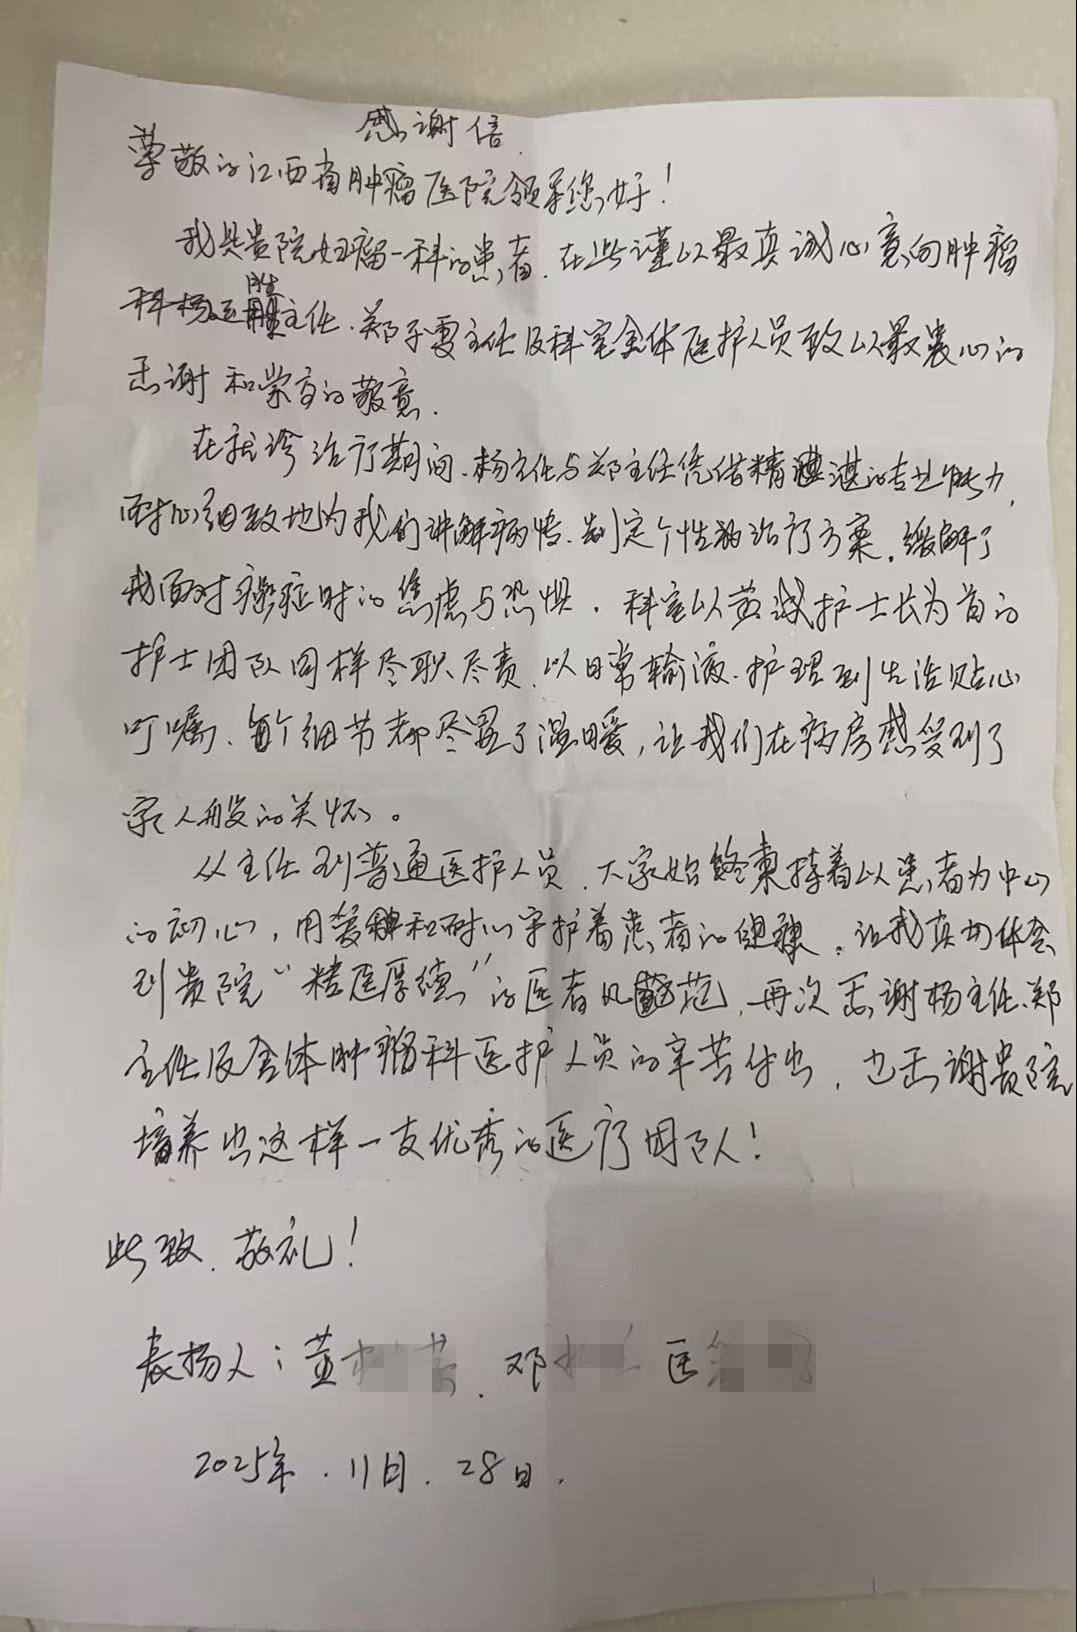 感谢信
尊敬的江西省肿瘤医院领导您好！
我是贵院妇瘤一科的患者、在此谨以最真诚心意向肿瘤
科杨运胜主任、郑子雯主任及科室全体医护人员致以最衷心的
感谢和崇高的敬意.
在就诊治疗期间、杨主任与郑主任凭借精湛的专业能力,
耐心细致地为我们讲解病情、制定个性的治疗方案,缓解了
我面对癌症时的焦虑与恐惧.科室以黄诚护士长为首的
护士团队同样尽职尽责、从日常输液、护理到生活贴心
叮嘱、每个细节都尽显了温暖,让我们在病房感受到了
家人般的关怀。
从主任到普通医护人员、大家始终秉持着以患者为中心
的初心,用爱和耐心守护着患者的健康.让我真切体会
到贵院“精医厚德”的医者风范,再次感谢杨主任、郑
主任及全体肿瘤科医护人员的辛苦付出,也感谢贵院
培养出这样一支优秀的医疗团队！
此致、敬礼！
表扬人：黄、邓 医
2025年.11月.28日.